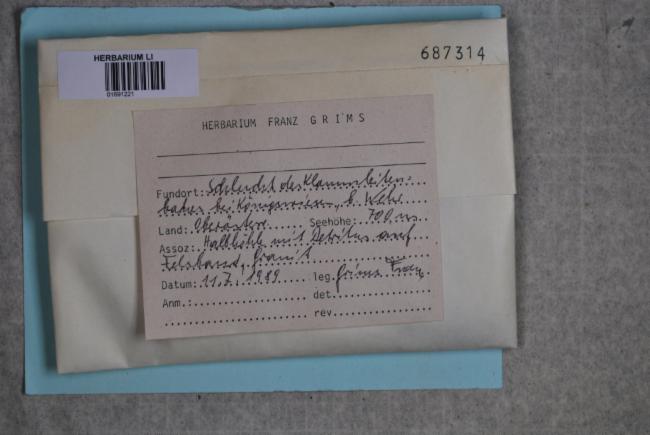 HERBARIUM LI
01691221
687314
HERBARIUM FRANZ GRIMS
Fundort: Schlucht des Klammleiten-
baches bei Königswiesen, b. Wehr
Land: Oberösterr. Seehöhe: 700 m
Assoz: Halbhöhle mit Detritus auf
Felsband, Granit
Datum: 11.7.1989 leg. Grims Franz
Anm.: det.
rev.